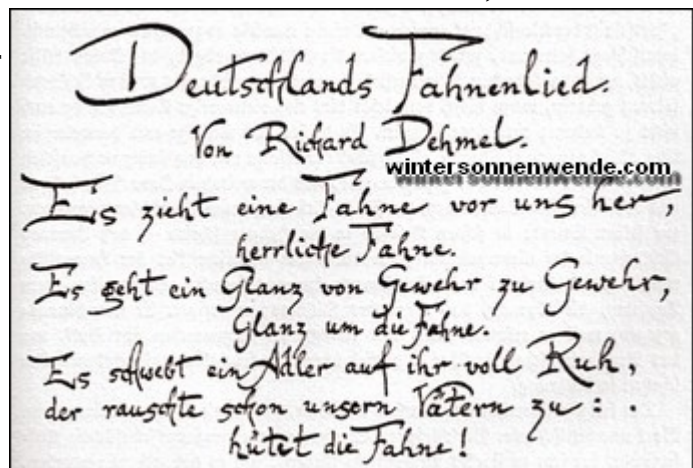 Deutschlands Fahnenlied.
Von Richard Dehmel.
wintersonnenwende.com
Es zieht eine Fahne vor uns her,
herrliche Fahne.
Es geht ein Glanz von Gewehr zu Gewehr,
Glanz um die Fahne.
Es schwebt ein Adler auf ihr voll Ruh,
der rauschte schon unsern Vätern zu :
hütet die Fahne!